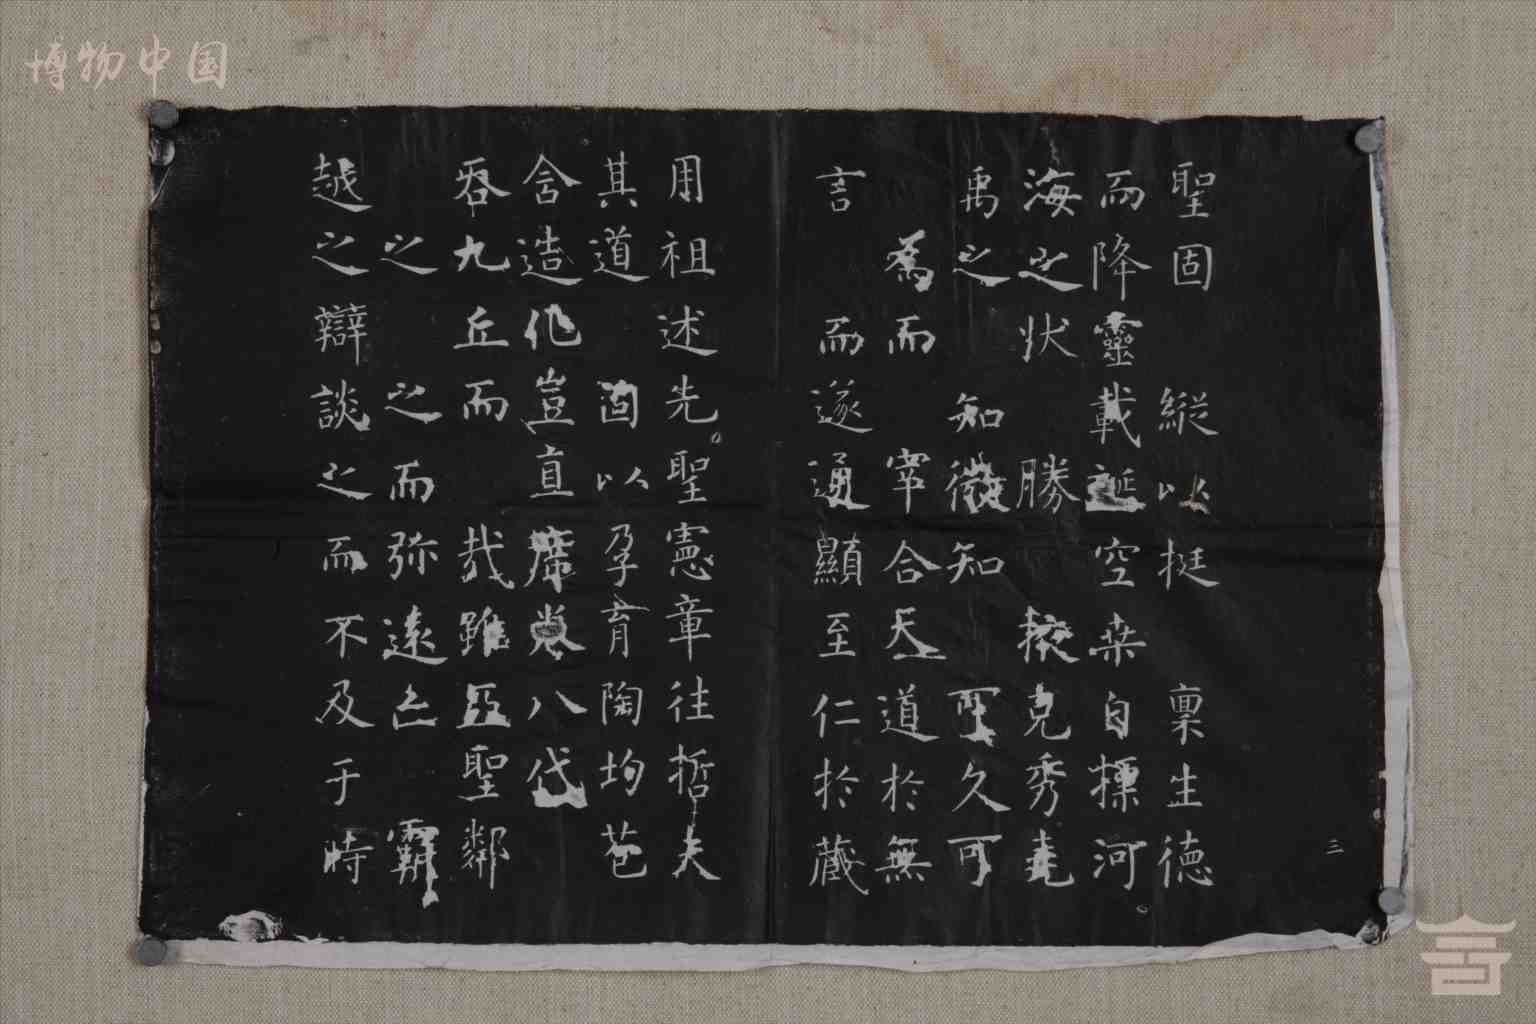 博物中国
三
聖固縱以挺稟生德
而降靈載誕空桒自摽河
海之狀勝掖克秀堯
禹之知微知可久可
為而宰合天道於無
言而遂通顯至仁於藏
用祖述先聖憲章往哲夫
其道固以孕育陶均苞
含造化豈直席卷八代
吞九丘而哉雖亞聖鄰
之之而弥遠亡霸
越之辯談之而不及于時